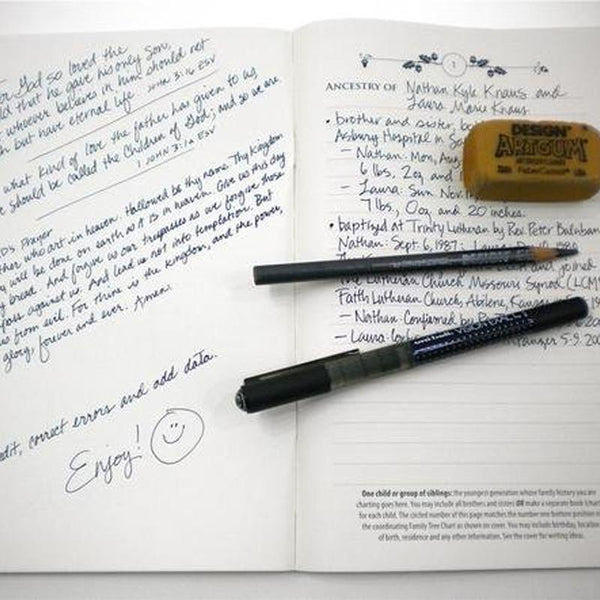 or God so loved the
ld that he gave his only Son,
whoever believes in him should not
h but have eternal life. JOHN 3:16 ESV
what kind of love the father has given to us,
e should be called the children of God; and so we are.
1 JOHN 3:1a ESV
Prayer
ther who art in heaven. Hallowed be thy name. Thy Kingdom
y will be done on earth as it is in heaven. Give us this day
y bread. And forgive us our trespasses as we forgive those
pass against us. And lead us not into temptation. But
us from evil. For thine is the kingdom, and the power,
glory, forever and ever. Amen.
edit, correct errors and add data.
Enjoy!
1
ANCESTRY OF Nathan Kyle Kraus and
Laura Marie Kraus
• brother and sister b
Asbury Hospital in S
– Nathan: Mon, Aug
6 lbs, 2 oz, and
– Laura: Sun Nov.
7 lbs, 0 oz, and 20 inches.
• baptized at Trinity Lutheran by Rev. Peter
Nathan: Sept. 6, 1987; Laura
and joined
The Lutheran Church Missouri Synod (LCM
Faith Lutheran Church, Abilene, Kansas
– Nathan: Confirmed by
– Laura: 5-9-20
DESIGN
ARTGUM
FaberCastell
uni-ball VISION ELITE
One child or group of siblings: the youngest generation whose family history you are
charting goes here. You may include all brothers and sisters OR make a separate book
for each child. The circled number of this page matches the number one bottom position
the coordinating Family Tree Chart as shown on cover. You may include birthday, location
of birth, residence and any other information. See the cover for writing ideas.